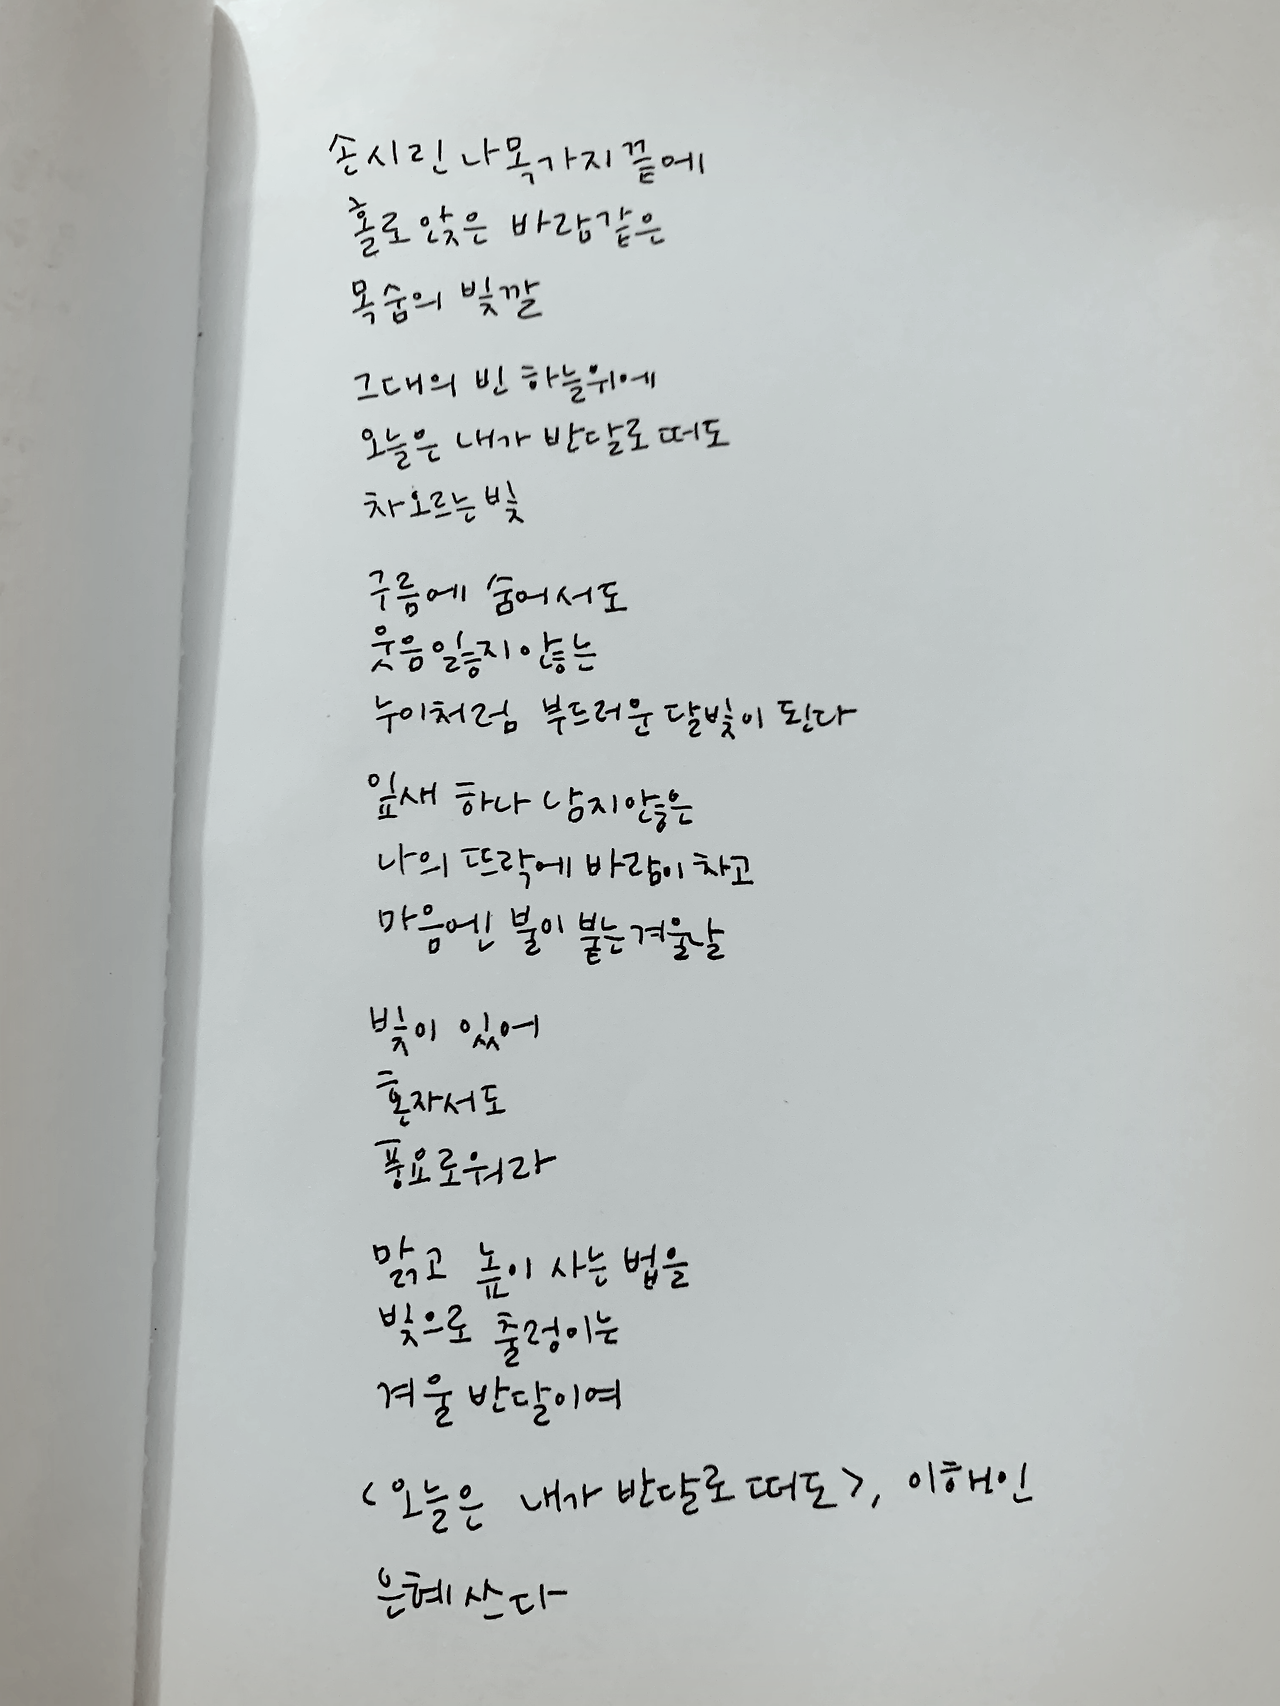 손시린 나목가지 끝에
홀로 앉은 바람같은
목숨의 빛깔
그대의 빈 하늘위에
오늘은 내가 반달로 떠도
차오르는 빛
구름에 숨어서도
웃음 잃지 않는
누이처럼 부드러운 달빛이 된다
잎새 하나 남지 않은
나의 뜨락에 바람이 차고
마음엔 불이 붙는 겨울날
빛이 있어
혼자서도
풍요로워라
맑고 높이 사는 법을
빛으로 출렁이는
겨울 반달이여
<오늘은 내가 반달로 떠도>, 이해인
은혜 쓰다